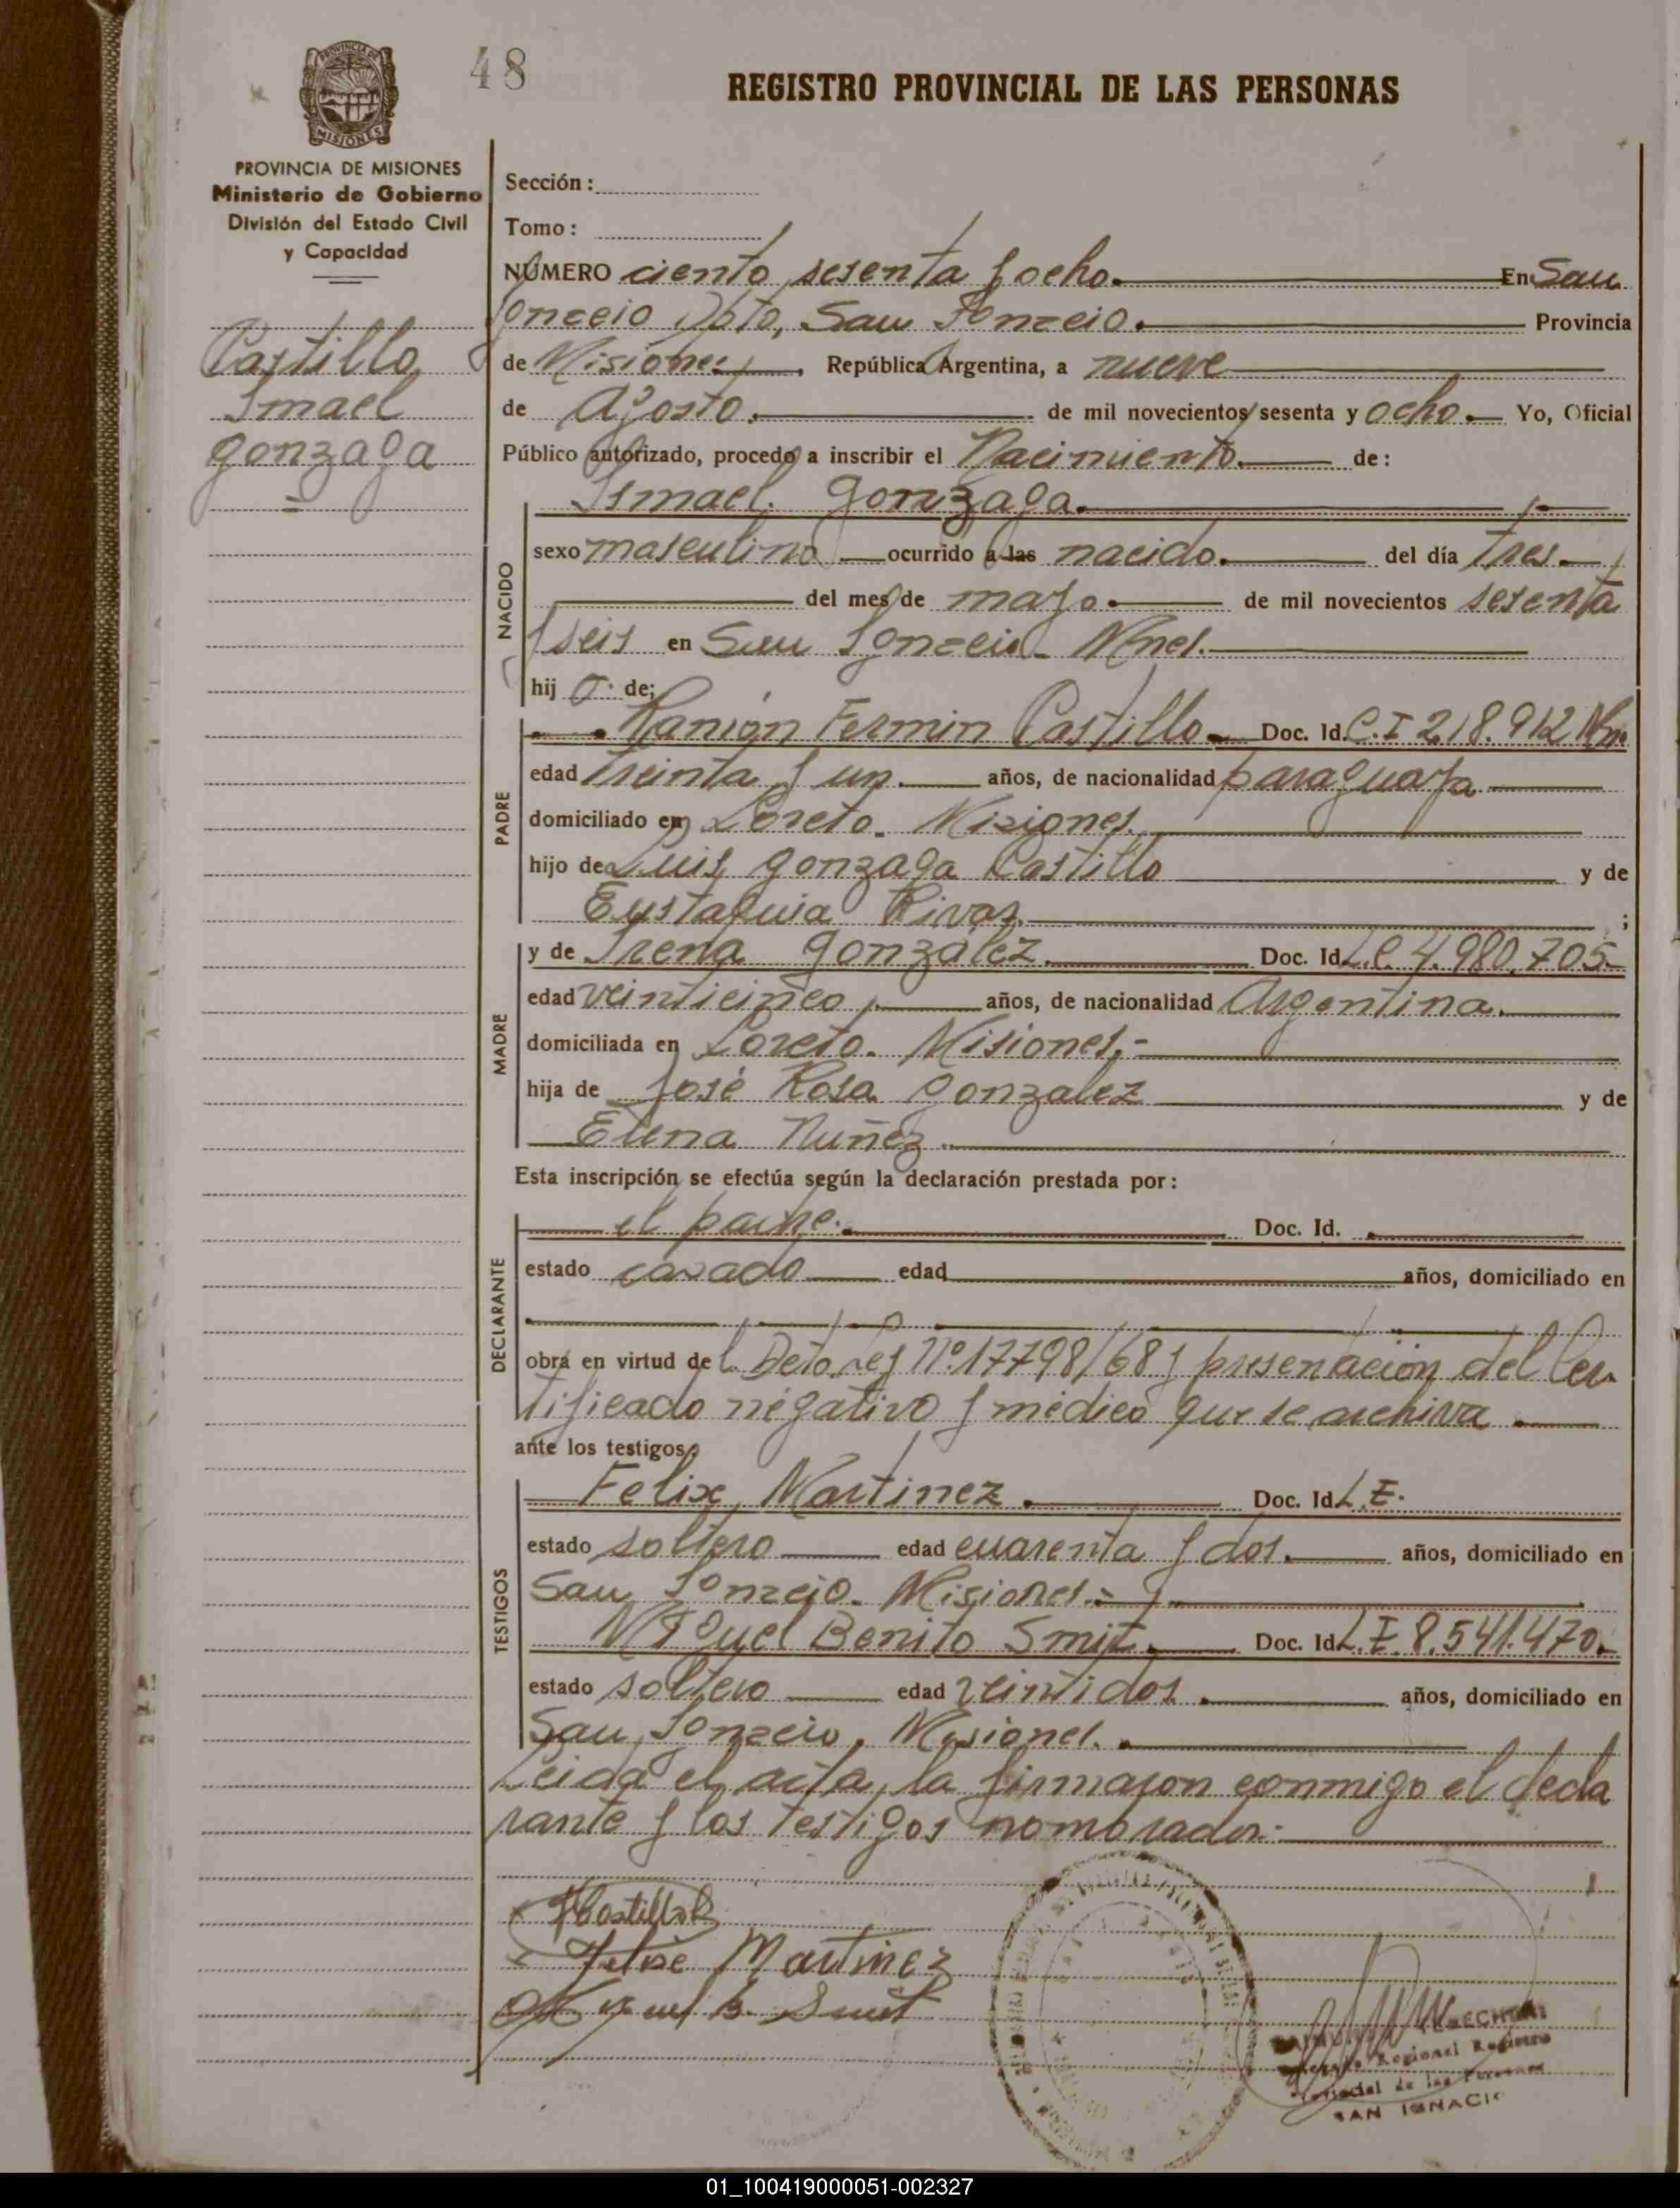 48
REGISTRO PROVINCIAL DE LAS PERSONAS
PROVINCIA DE MISIONES
PROVINCIA DE MISIONES
Ministerio de Gobierno
División del Estado Civil
y Capacidad
Castillo
Ismael
gonzaga
Sección:
Tomo:
NÚMERO ciento sesenta y ocho. En San
Ignacio Dpto, San Ignacio. Provincia
de Misiones, República Argentina, a nueve
de Agosto. de mil novecientos sesenta y ocho. Yo, Oficial
Público autorizado, procedo a inscribir el Nacimiento. de:
Ismael. gonzaga.
NACIDO
sexo masculino ocurrido a las nacido. del día tres.
del mes de mayo. de mil novecientos sesenta
y seis en San Ignacio - Mnes.
hij o. de;
PADRE
Ramón Fermin Castillo. Doc. Id. C.I 218.912 Mnes
edad treinta y un. años, de nacionalidad paraguaya
domiciliado en Loreto. Misiones.
hijo de Luis gonzaga Castillo y de
Eustaquia Rivas. ;
MADRE
y de Irena gonzález. Doc. Id. L.C. 4.980.705-
edad veinticinco, años, de nacionalidad Argentina.
domiciliada en Loreto. Misiones.-
hija de José Rosa gonzalez y de
Elena Nuñez.
Esta inscripción se efectúa según la declaración prestada por:
DECLARANTE
el padre. Doc. Id.
estado casado edad años, domiciliado en
obra en virtud del Dcto. Ley Nº 17798/68 y presentación del Cer
tificado négativo y médico que se archiva.
ante los testigos
TESTIGOS
Felix Martinez. Doc. Id. L.E.
estado soltero edad cuarenta y dos. años, domiciliado en
San Ignacio. Misiones.=
Miguel Benito Smit. Doc. Id. L.E. 8.541.470.
estado soltero edad veintidos. años, domiciliado en
San Ignacio, Misiones.
Leida el acta, la firmaron conmigo el decla
rante y los testigos nombrados.
Castillo
Felix Martinez
Miguel B. Smit
Regional Registro
de las Personas
SAN IGNACIO
01_100419000051-002327